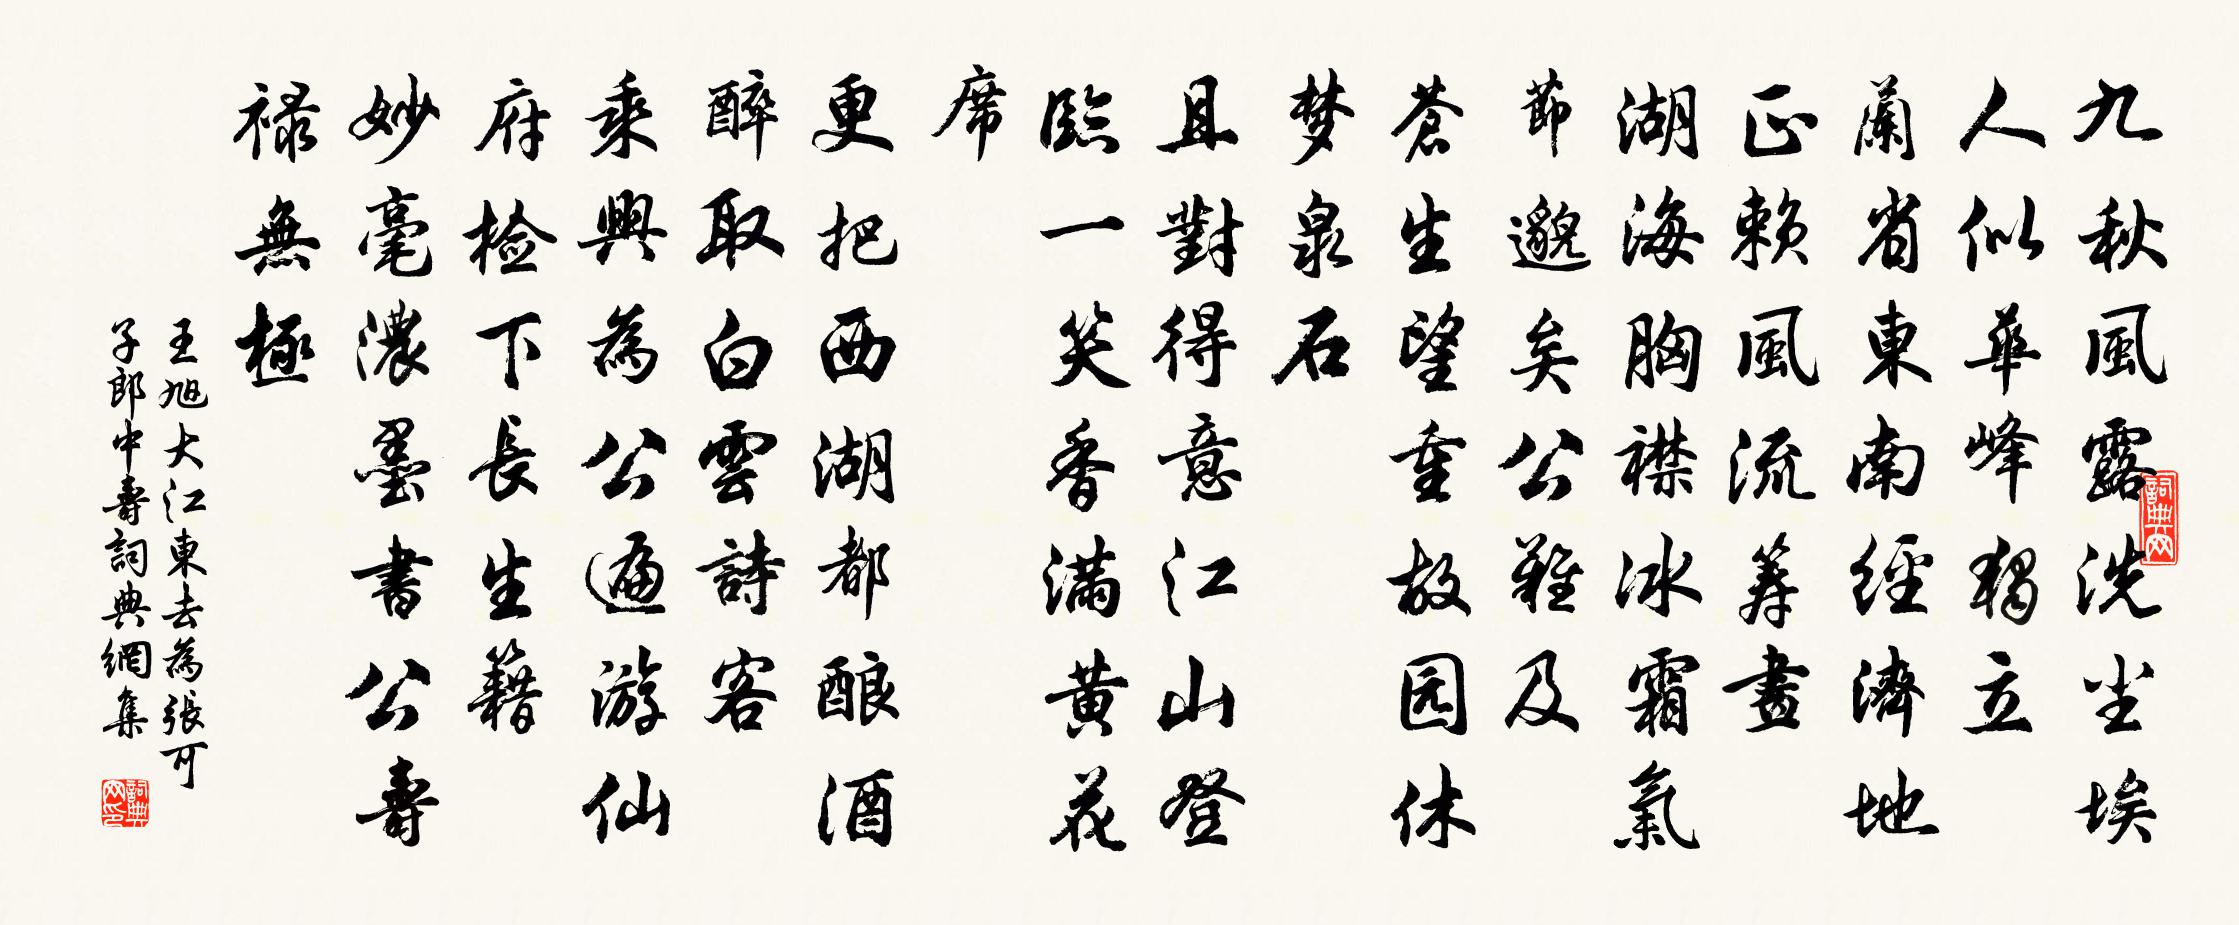 九秋風露洗尘埃
人似華峰獨立
蘭省東南經濟地
正赖風流筹畫
湖海胸襟冰霜氣
節邈矣公難及
蒼生望重故园休
梦泉石
且對得意江山登
臨一笑香满黄花
席
更把西湖都酿酒
醉取白雲詩客
乘興為公遍游仙
府检下長生籍
妙毫濃墨書公壽
禄無極
王旭大江東去為張可
子郎中壽詞典網集
詞典网
詞典网印